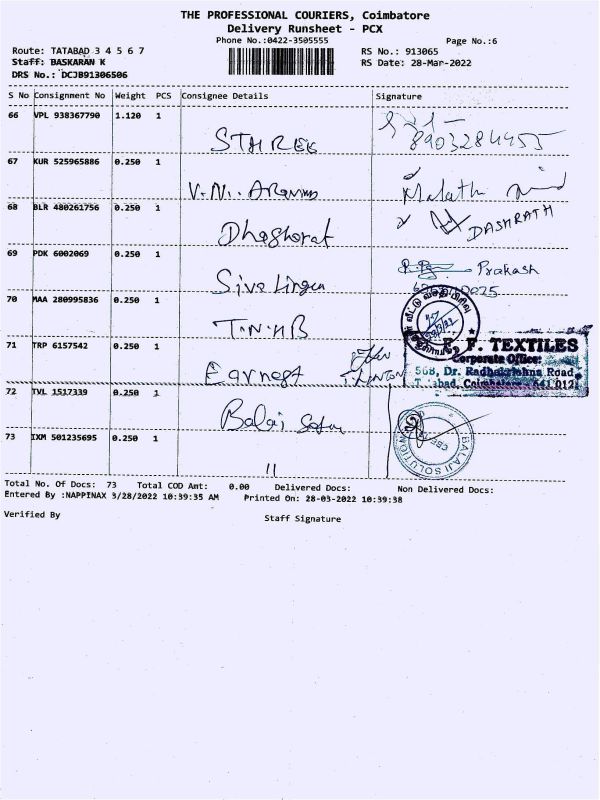 THE PROFESSIONAL COURIERS, Coimbatore
Delivery Runsheet - PCX
Phone No.:0422-3505555
Page No.:6
Route: TATABAD 3 4 5 6 7
RS No.: 913065
Staff: BASKARAN K
RS Date: 28-Mar-2022
DRS No.: DCJB91306506
S No Consignment No Weight PCS Consignee Details Signature
66 VPL 938367790 1.120 1
8903284455
67 KUR 525965886 0.250 1
V.N.
68 BLR 480261756 0.250 1
DASHRATH
69 PDK 6002069 0.250 1
Prakash
Siva Lingam
70 MAA 280995836 0.250 1
T.N.HB
F. TEXTILES
71 TRP 6157542 0.250 1
Corporate Office:
Earnest
568, Dr. Radhakrishna Road
Coimbatore - 641 012
72 TVL 1517339 0.250 1
Balaji
BALAJI SOLUTION
CBE
73 IXM 501235695 0.250 1
"
Total No. Of Docs: 73 Total COD Amt: 0.00 Delivered Docs: Non Delivered Docs:
Entered By :NAPPINAX 3/28/2022 10:39:35 AM Printed On: 28-03-2022 10:39:38
Verified By
Staff Signature